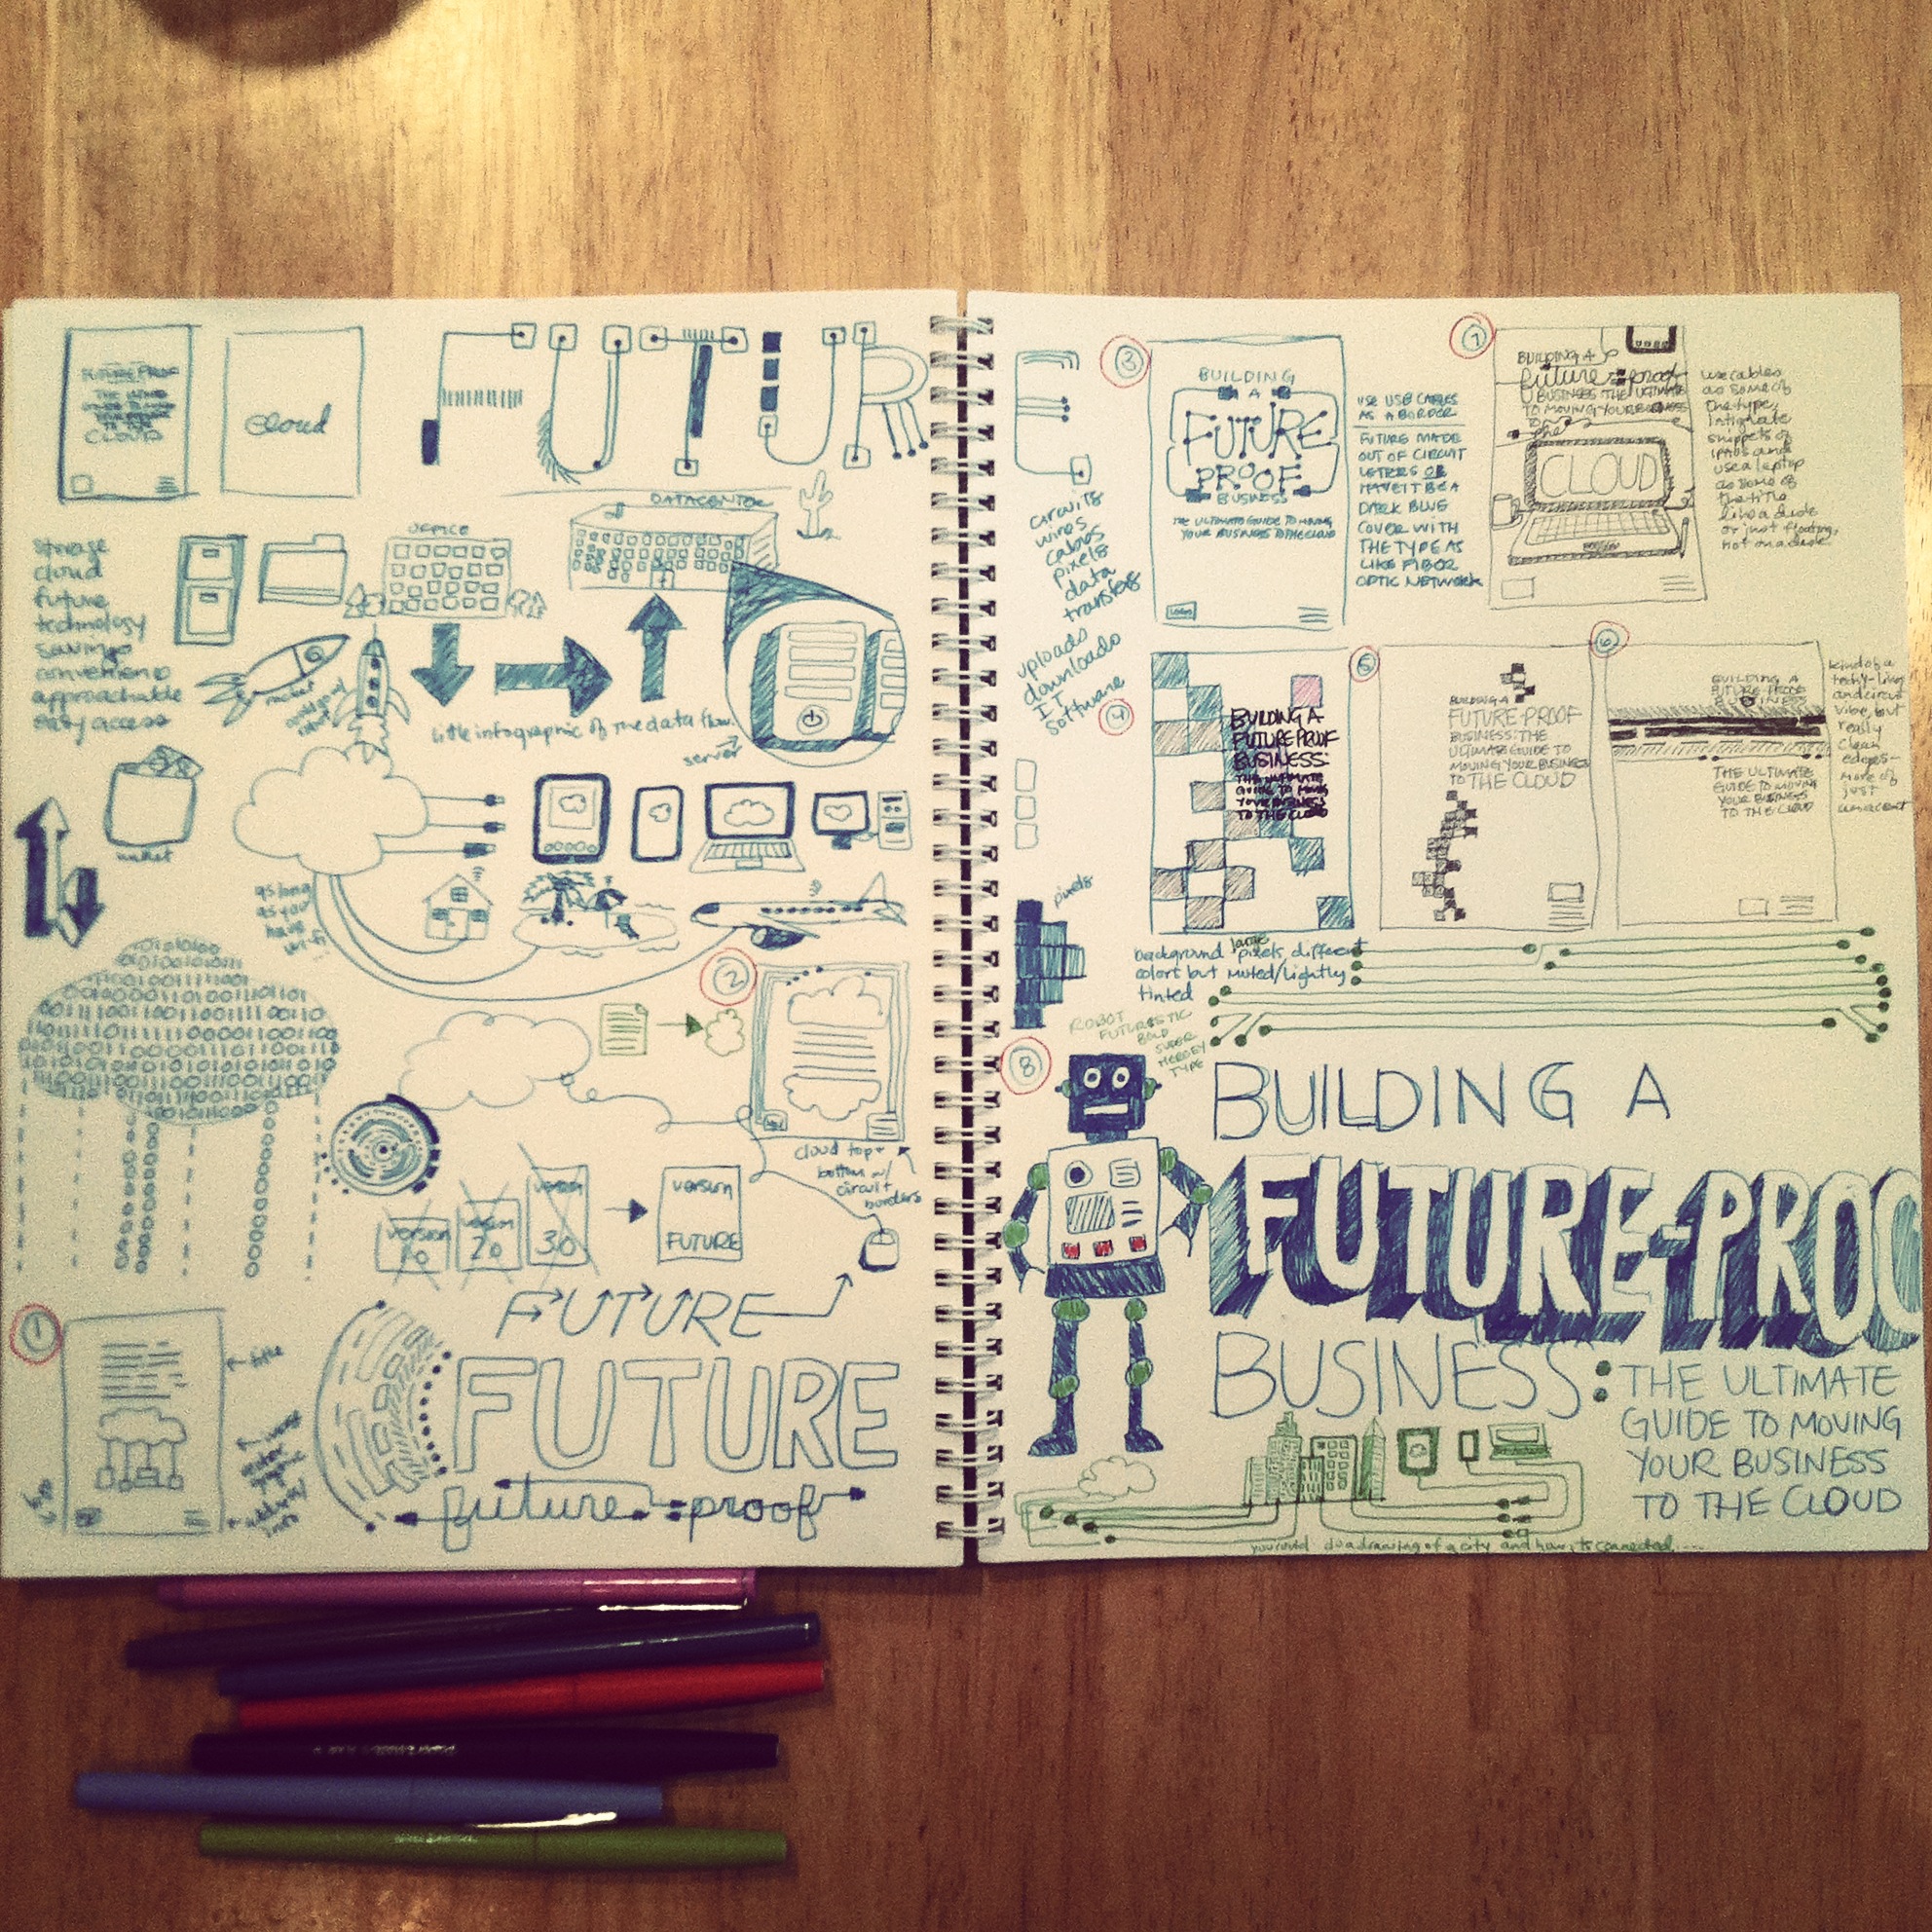 FUTURE PROOF
CLOUD
cloud
FUTURE
DATACENTER
OFFICE
storage
cloud
future
technology
savings
convenience
approachable
easy access
rocket
little infographic of the data flow.
server
wallet
as long
as you
have
wi-fi
2
cloud top +
bottom w/
circuit
borders
version
1.0
version
2.0
version
3.0
version
FUTURE
1
title
FUTURE
FUTURE
future-proof
circuits
wires
cables
pixels
data
transfers
uploads
downloads
IT
software
3
BUILDING
A
FUTURE
PROOF
BUSINESS
THE ULTIMATE GUIDE TO MOVING
YOUR BUSINESS TO THE CLOUD
LOGO
USE USB CABLES
AS A BORDER
FUTURE MADE
OUT OF CIRCUIT
LETERS OR
HAVE IT BE A
DARK BLUE
COVER WITH
THE TYPE AS
LIKE FIBOR
OPTIC NETWORK
7
BUILDING A
future-proof
BUSINESS THE ULTIMATE
TO MOVING YOUR BUSINESS
TO
the
CLOUD
use cables
as some of
the type,
intigrate
snippets of
ipads and
use a laptop
as some of
the title
like a dude
or just floating,
not on a dude
4
BUILDING A
FUTURE PROOF
BUSINESS:
THE ULTIMATE
GUIDE TO MOVING
YOUR BUSINESS
TO THE CLOUD
background large pixels different
colors but muted/lightly
tinted
5
BUILDING A
FUTURE-PROOF
BUSINESS: THE
ULTIMATE GUIDE TO
MOVING YOUR BUSINESS
TO THE CLOUD
6
BUILDING A
FUTURE-PROOF
BUSINESS
THE ULTIMATE
GUIDE TO MOVING
YOUR BUSINESS
TO THE CLOUD
kind of a
techy-lines
and circuit
vibe, but
really
clean
edges-
more of
just
an accent
pixels
ROBOT
FUTURISTIC
BOLD
SUPER
HEROEY
TYPE
8
BUILDING A
FUTURE-PROO
BUSINESS:
THE ULTIMATE
GUIDE TO MOVING
YOUR BUSINESS
TO THE CLOUD
you could do a drawing of a city and how its connected....